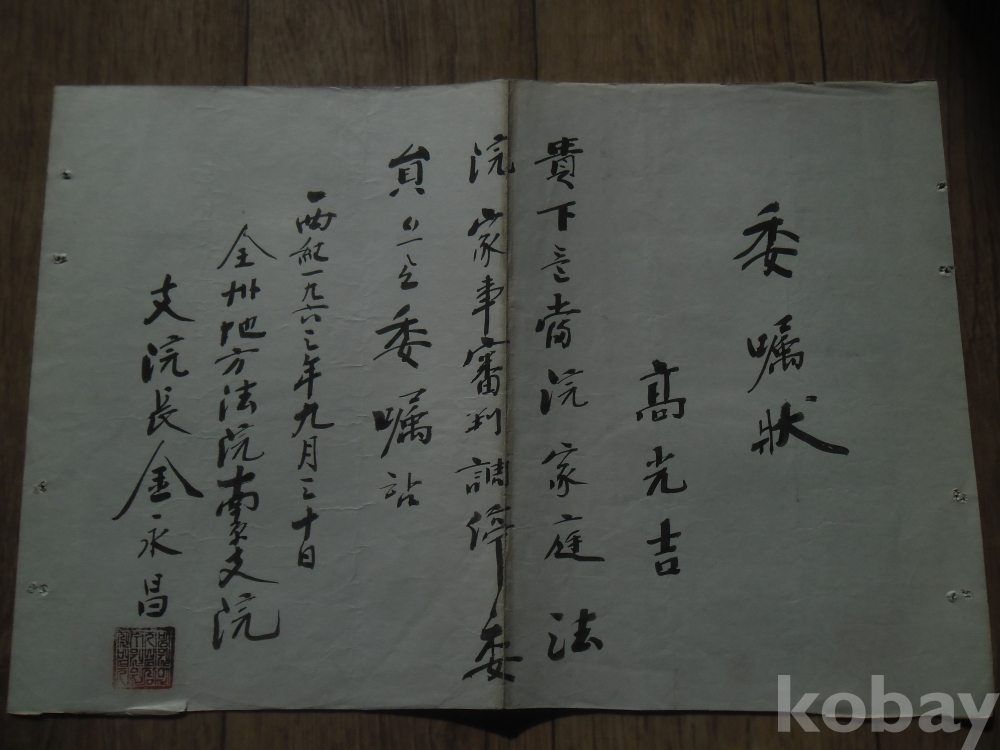 委嘱狀
高光吉
貴下를當院家庭法
院家事審判調停委
員으로委嘱함
西紀一九六三年九月三十日
全州地方法院南原支院
支院長金永昌
kobay